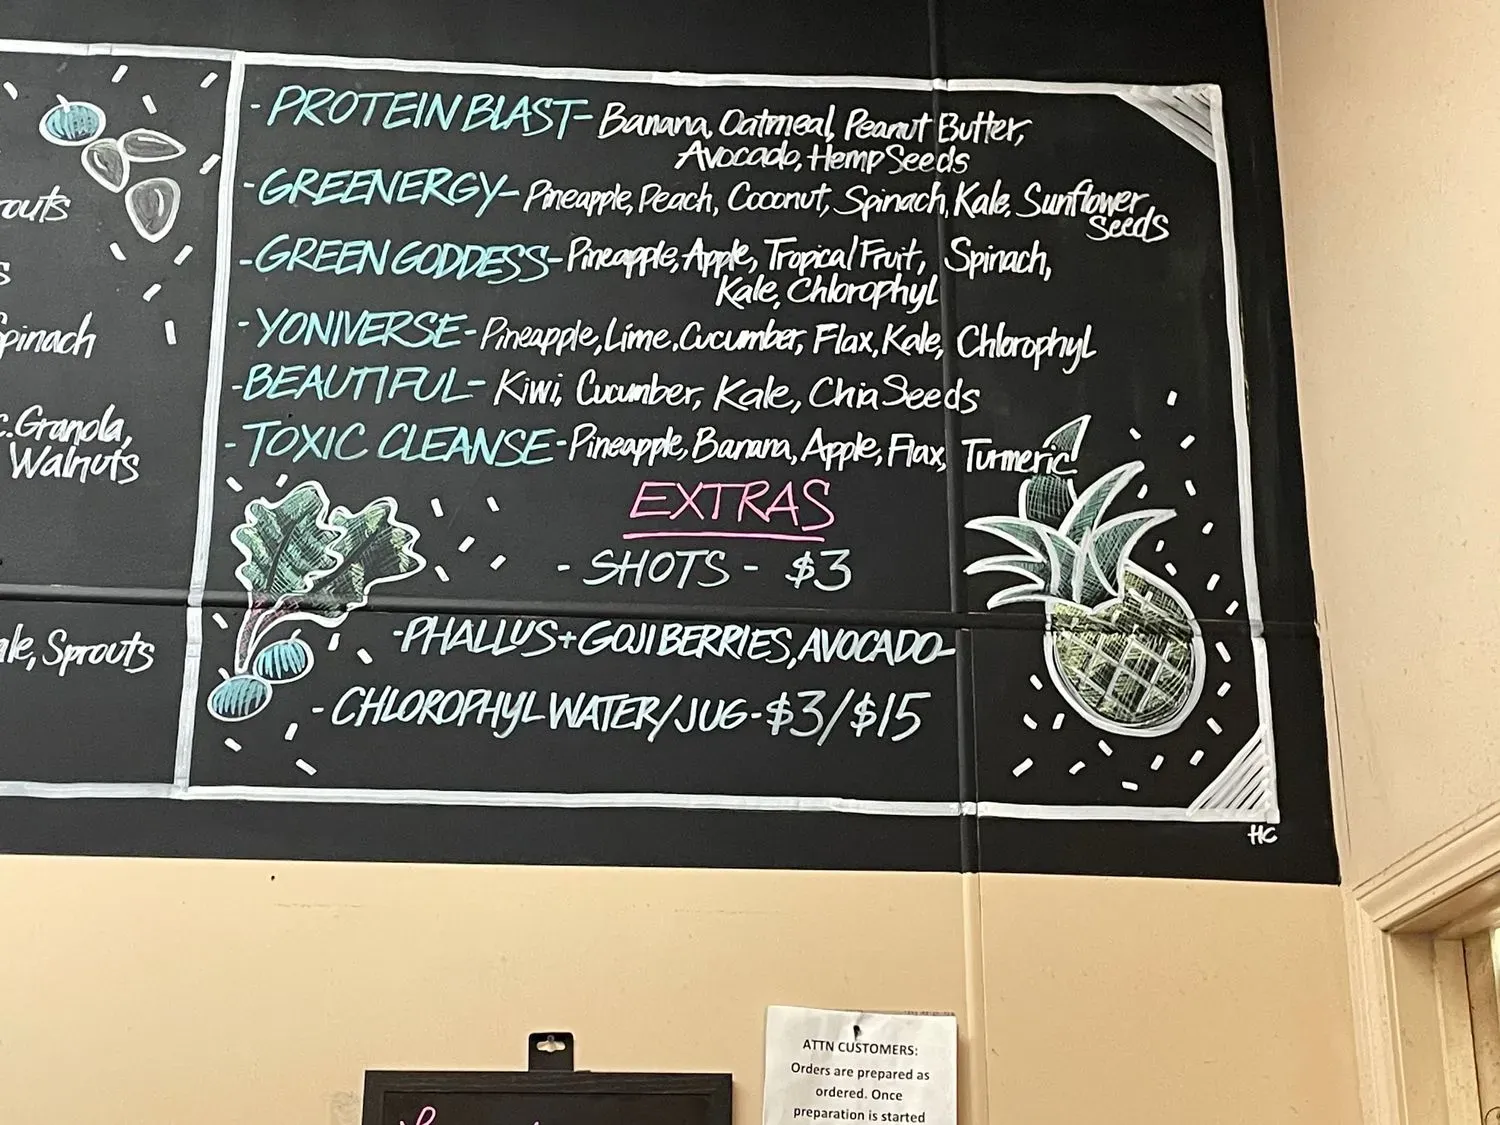 routs
s
Spinach
c. Granola,
Walnuts
ale, Sprouts
- PROTEIN BLAST - Banana, Oatmeal, Peanut Butter,
Avocado, Hemp Seeds
- GREENERGY - Pineapple, Peach, Coconut, Spinach, Kale, Sunflower
Seeds
- GREEN GODDESS - Pineapple, Apple, Tropical Fruit, Spinach,
Kale, Chlorophyl
- YONIVERSE - Pineapple, Lime, Cucumber, Flax, Kale, Chlorophyl
- BEAUTIFUL - Kiwi, Cucumber, Kale, Chia Seeds
- TOXIC CLEANSE - Pineapple, Banana, Apple, Flax, Turmeric
EXTRAS
- SHOTS - $3
- PHALLUS + GOJI BERRIES, AVOCADO -
- CHLOROPHYL WATER/JUG - $3/$15
HC
ATTN CUSTOMERS:
Orders are prepared as
ordered. Once
preparation is started